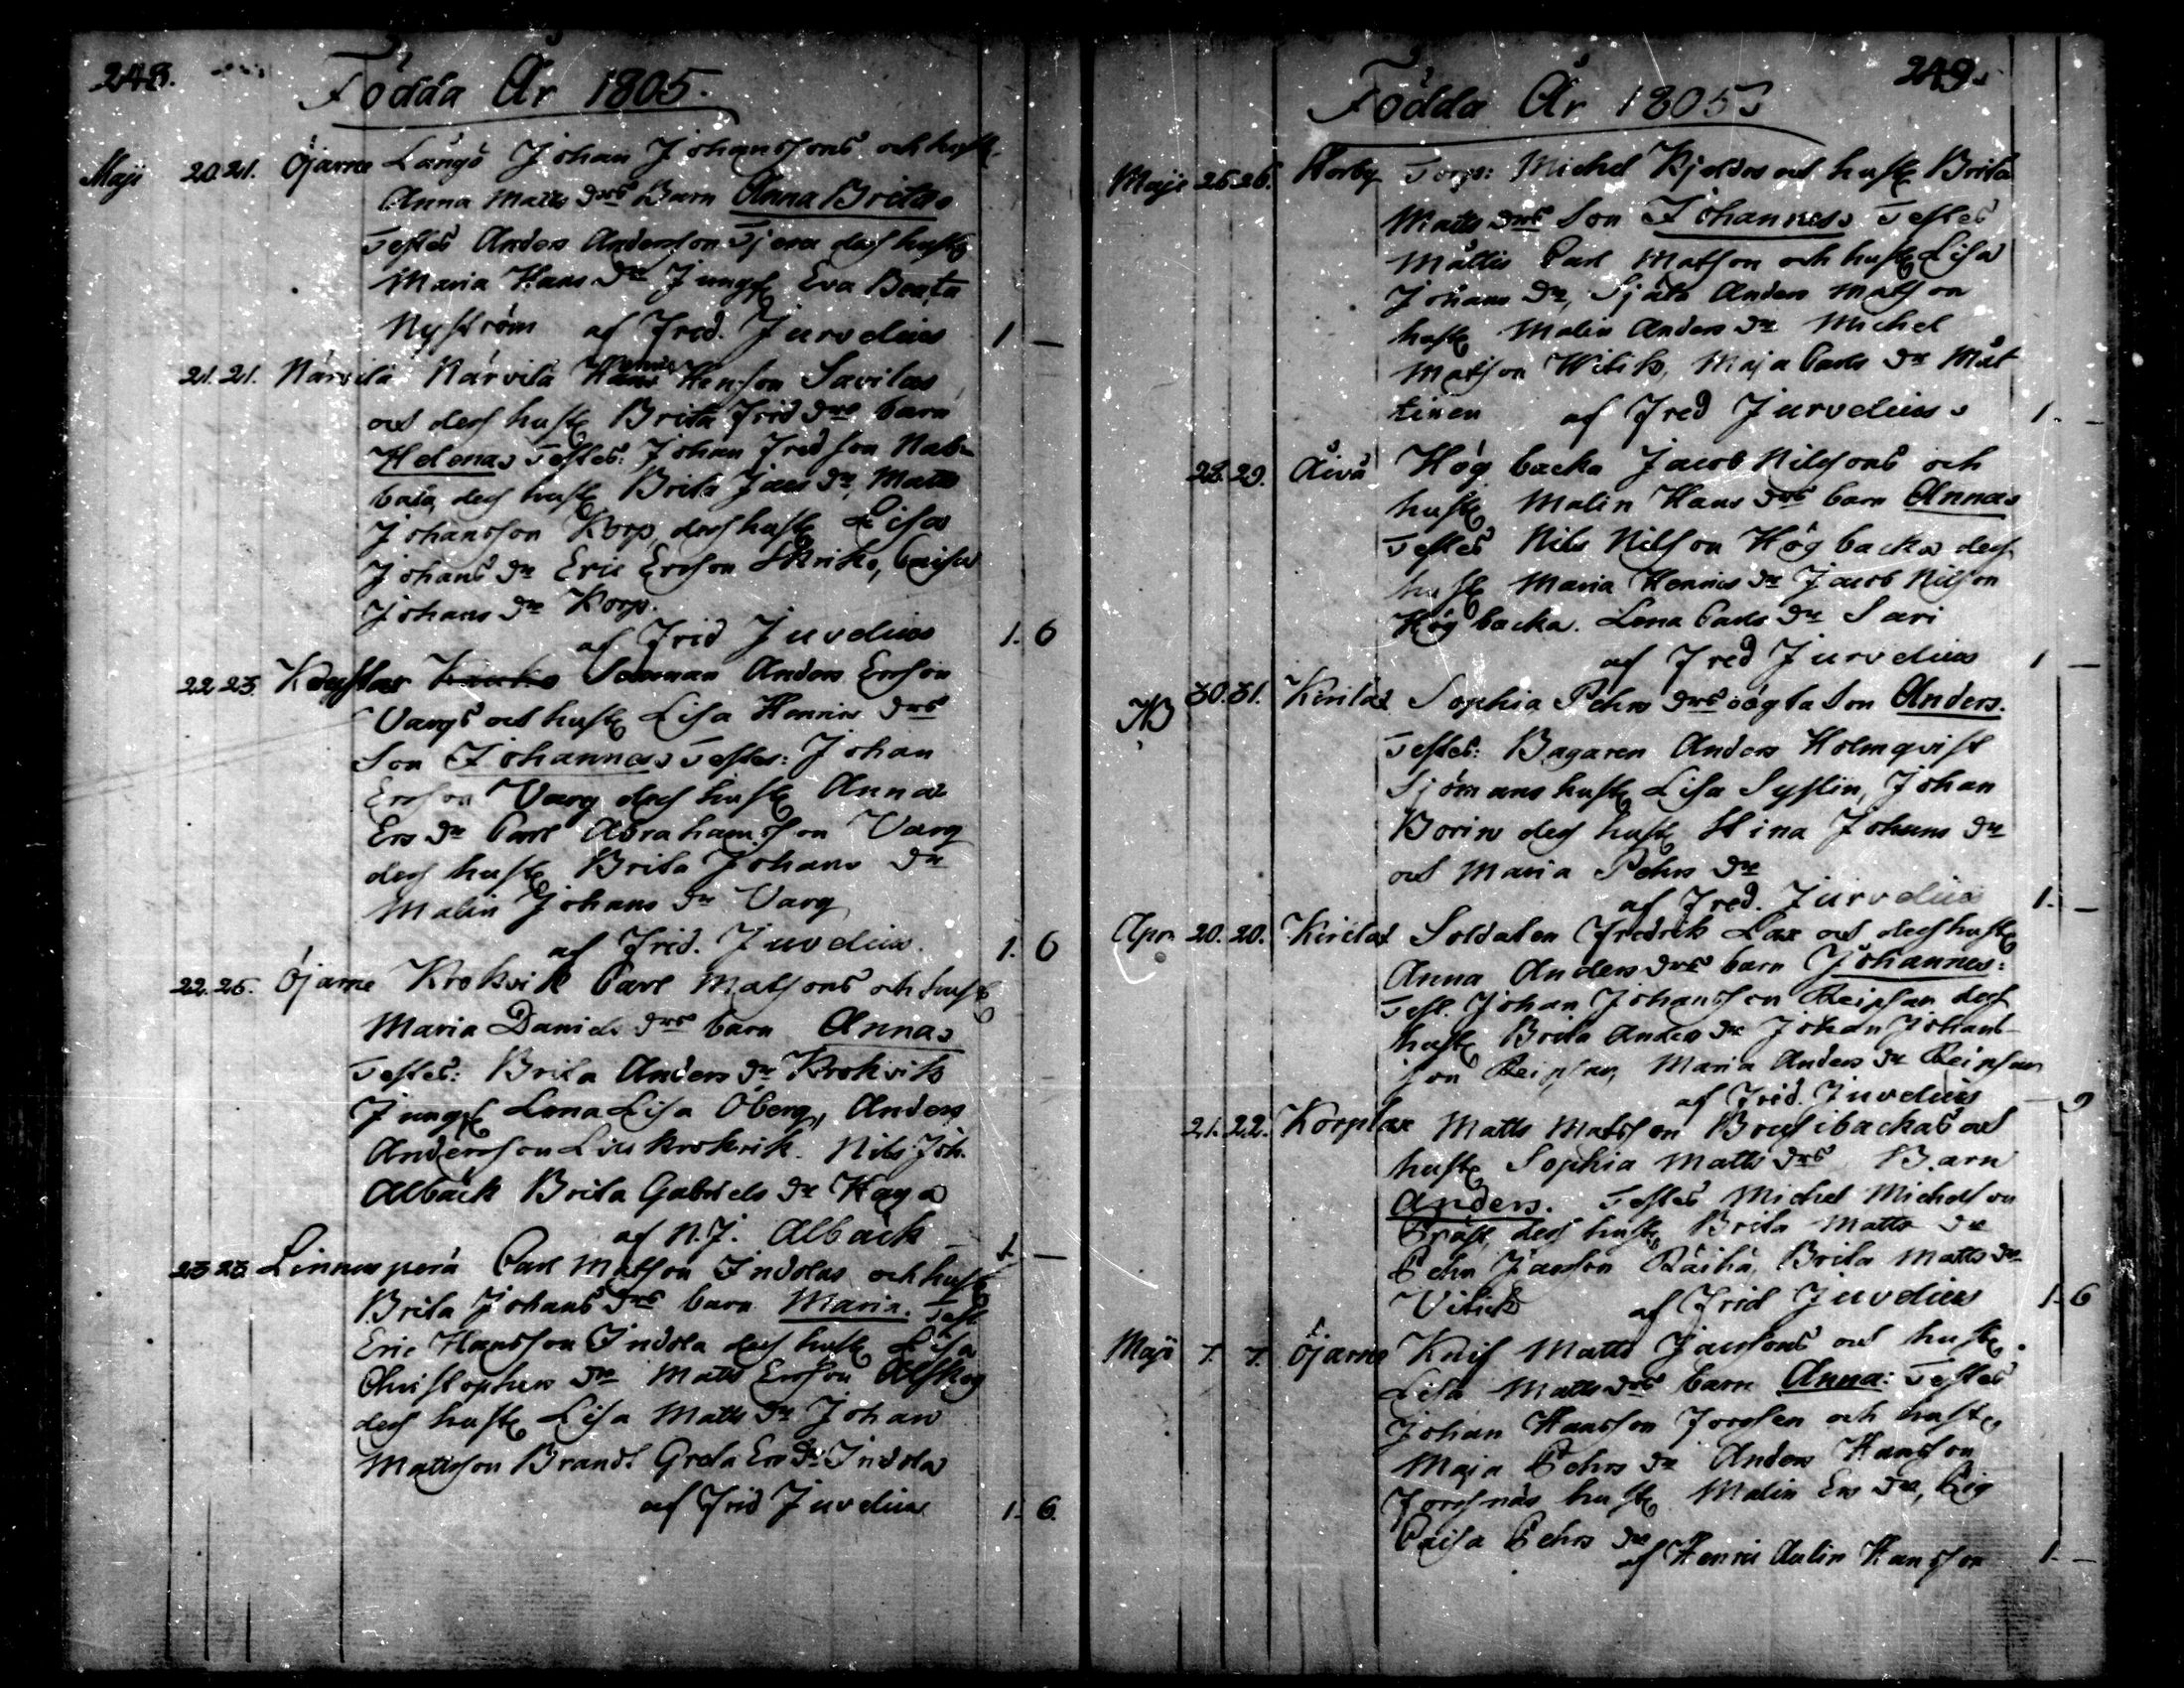 248.
Födda År 1805.
Maji 20. 21. Öjarne Långö Johan Johanssons och hust.
Anna Matts drs Barn Anna Brita.
Testes Anders Andersson Tjera dess hust
Maria Hans dr Jungf Eva Beata
Nyström af Fred. Jurvelius 1 —
21. 21. Närvilä Närvilä Henric Henson Savilas
och dess hust Brita Frid drs barn
Helena. Testes: Johan Fredson Nab-
bala, dess hust Brita Jacs dr, Matts
Johansson Korp, dess hust Lisa
Johans dr Eric Ersson Skriko, Caisa
Johans dr Korp.
af Frid Juvelius 1. 6
22 23. Anders Ersson
Vargs och hust Lisa Henrics drs
Son Johannes. Testes: Johan
Ersson Varg dess hust Anna
Ers dr Carl Abrahamsson Varg
dess hust Brita Johans dr
Malin Johans dr Varg
af Frid. Juvelius. 1. 6
22. 25. Öjarne Krokvik Carl Matsons och hust
Maria Daniels drs barn Anna.
Testes: Brita Anders dr Krokvik
Jungf Lena Lisa Öberg, Anders
Andersson Lill Krokvik. Nils Joh.
Albäck Brita Gabriels dr Haga
af N. J. Albäck 1. —
23 23. Linnusperä Carl Matson Indolas och hust
Brita Johans drs barn Maria. Test
Eric Hansson Indola dess hust Lisa
Christophers dr Matts Ersson Alskog
dess hust Lisa Matts dr Johan
Mattsson Brandt Greta Ers dr Indola
af Frid Juvelius 1. 6.
249.
Födda År 1805
Maji 26 26. Storby Torp: Michel Kjoldos och hust Brita
Matts drs Son Johannes. Testes
Måttis Carl Matson och hust Lisa
Johans dr, Sjåts Anders Matson
hust Malin Anders dr Michel
Matson Witik, Maja Carls dr Måt
tinen af Fred Jurvelius 1. —
28. 29. Åivå Högbacka Jacob Nilssons och
hust Malin Hans drs barn Anna
Testes Nils Nilsson Högbacka dess
hust Maria Henrics dr Jacob Nilson
Högbacka. Lena Carls dr Sari
af Fred Jurvelius 1 —
NB 30. 31. Kirilax Sophia Pehrs drs oägta Son Anders.
Testes: Bagaren Anders Holmqvist
Sjömans hust Lisa Syslin, Johan
Borin dess hust Stina Johans dr
och Maria Pehrs dr
af Fred. Jurvelius 1. —
Apr. 20. 20. Kirilax Soldaten Fredrik Lax och dess hust
Anna Anders drs barn Johannes:
Test. Johan Johansson Reipsar dess
hust Brita Anders dr Johan Johans-
son Reipsar, Maria Anders dr Reipsar
af Frid. Juvelius — 9
21. 22. Korplax Matts Matsson Brusibackas och
hust Sophia Matts drs Barn
Anders. Testes Michel Michelson
dess hust Brita Matts dr
Pehr Jacsson Räihä, Brita Matts dr
Vitick af Frid Juvelius 1. 6
Maji 7. 7. Öjarne Knif Matts Jacssons och hust
Lisa Matts drs barn Anna: Testes
Johan Hansson Forssen och hust
Maja Pehrs dr Anders Hansson
Forssnäs hust Malin Ers dr, Pig
Caisa Pehrs dr
af Henric Aulin Hansson 1. —